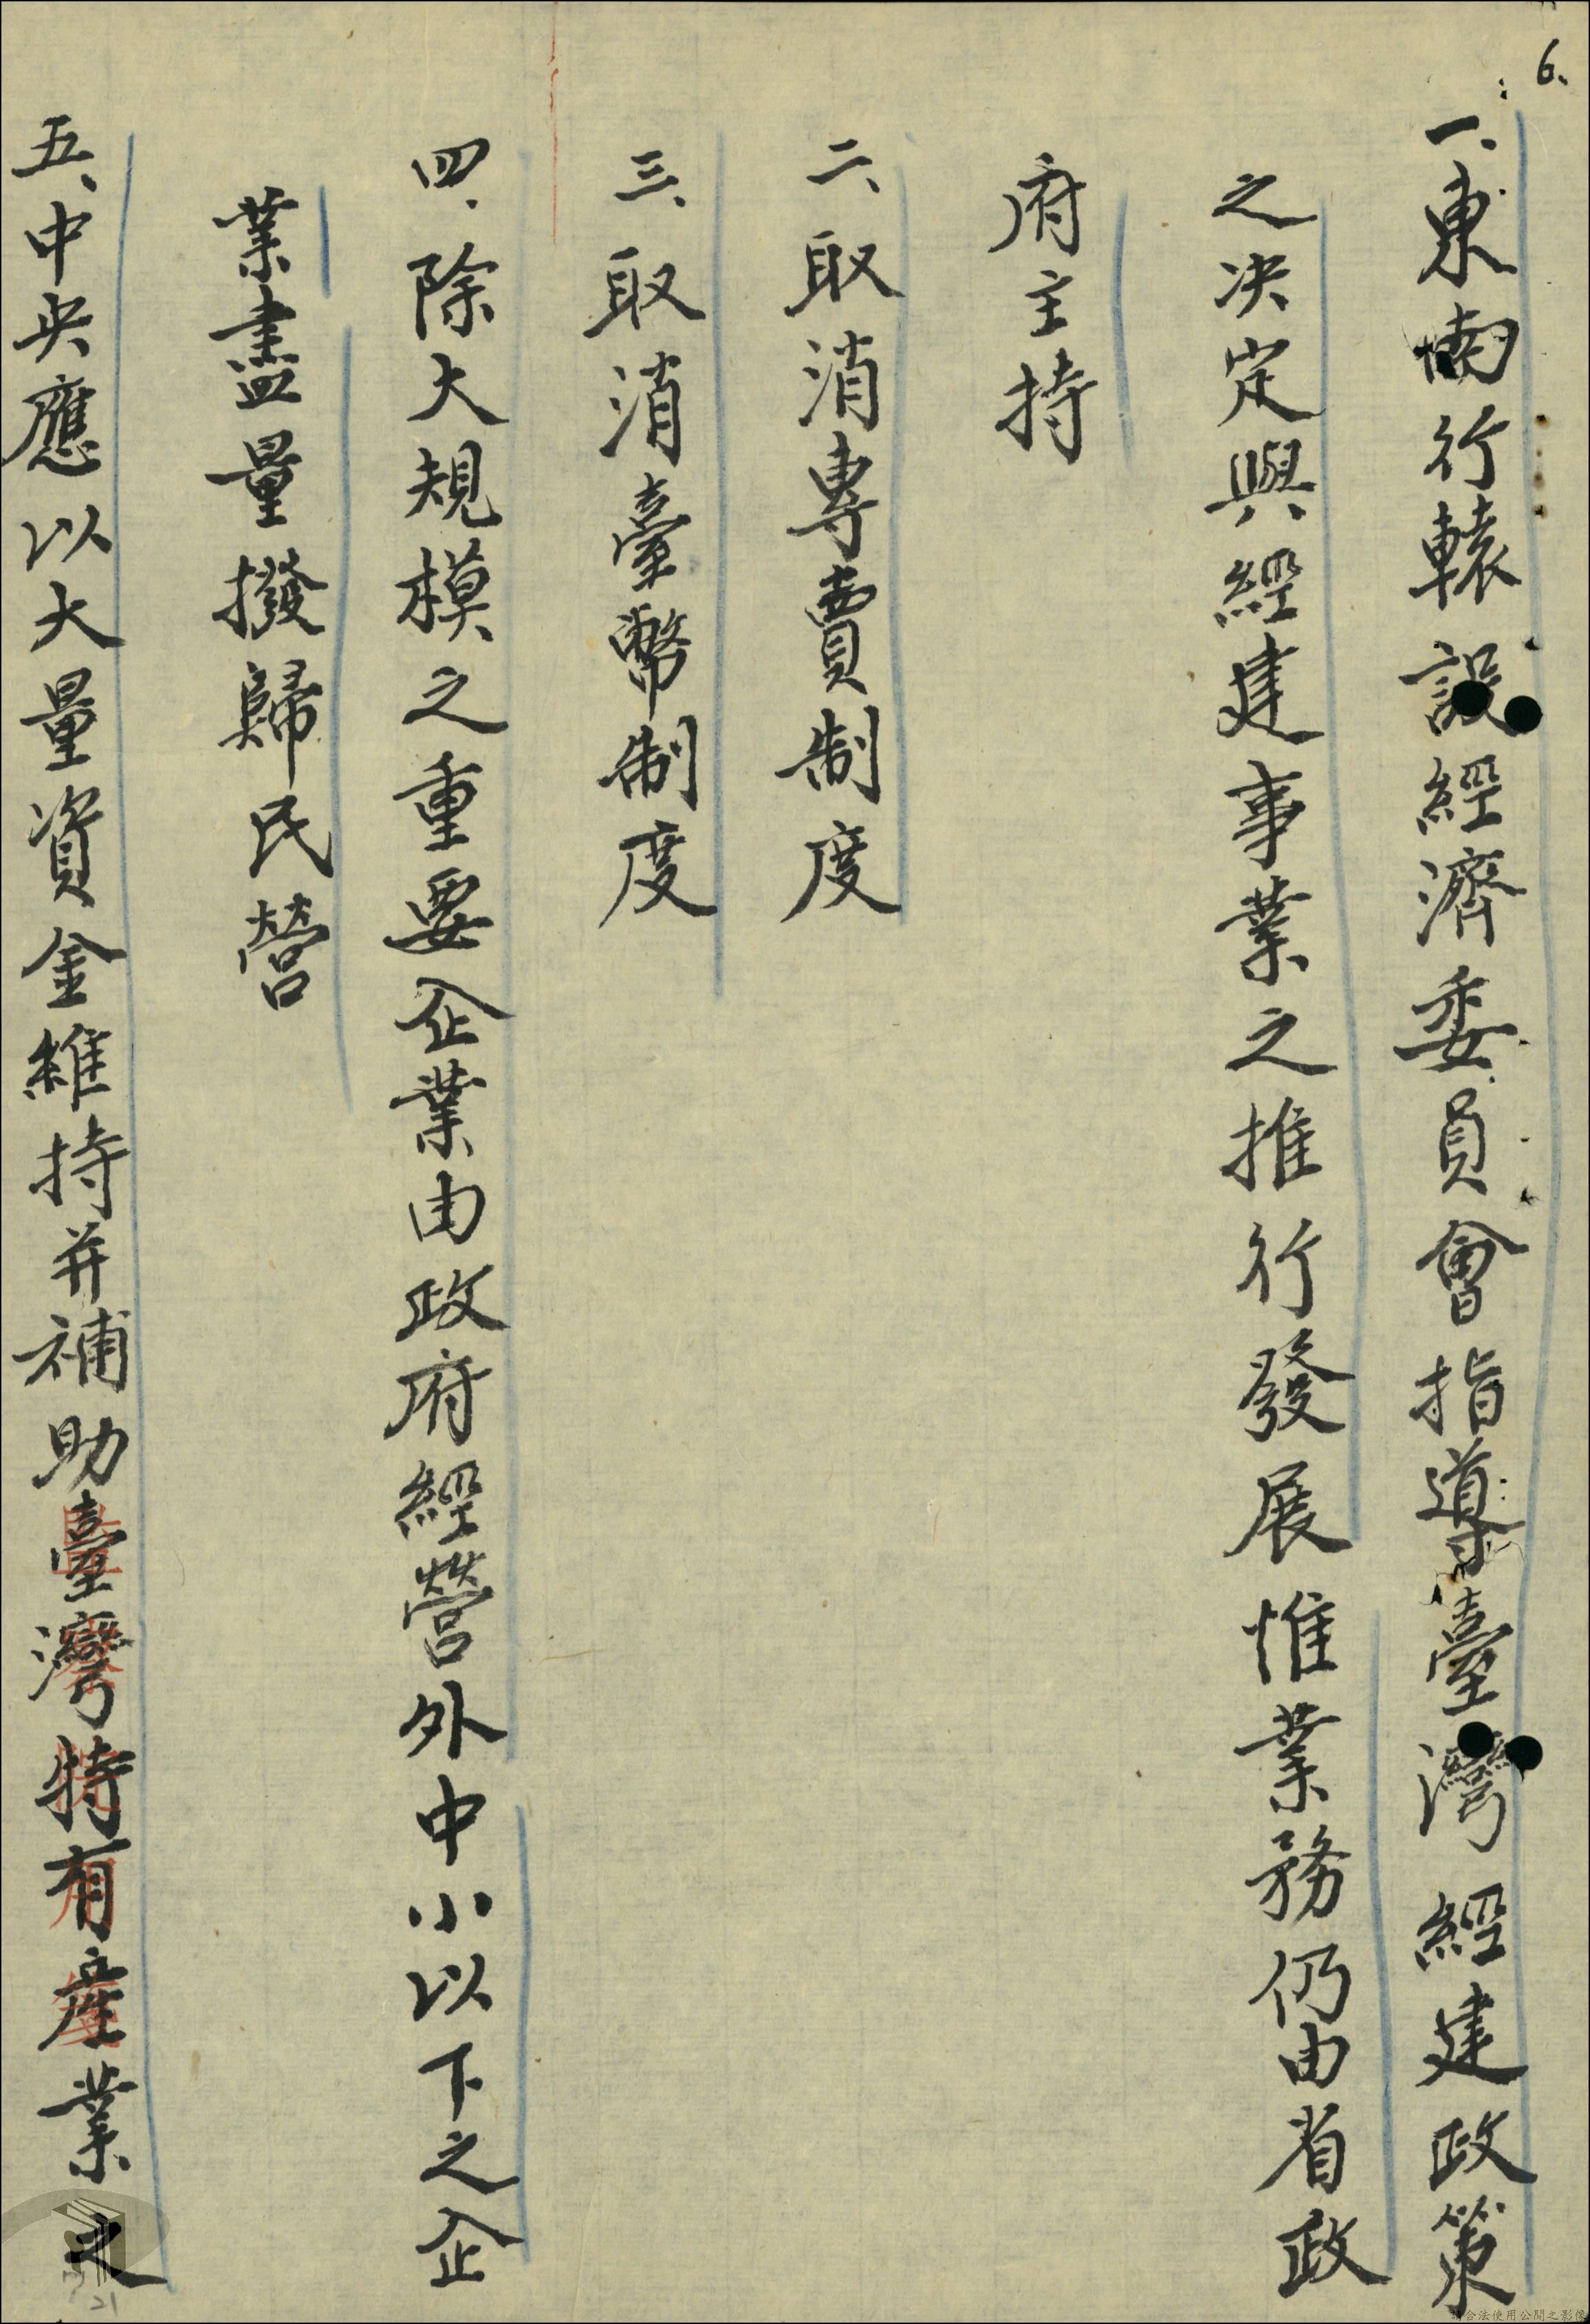 6.
一、東南行轅設經濟委員會指導臺灣經建政策
之决定與經建事業之推行發展惟業務仍由省政
府主持
二、取消專賣制度
三、取消臺幣制度
四、除大規模之重要企業由政府經營外中小以下之企
業盡量撥歸民營
五、中央應以大量資金維持并補助臺灣特有產業之
21
請合法使用公開之影像